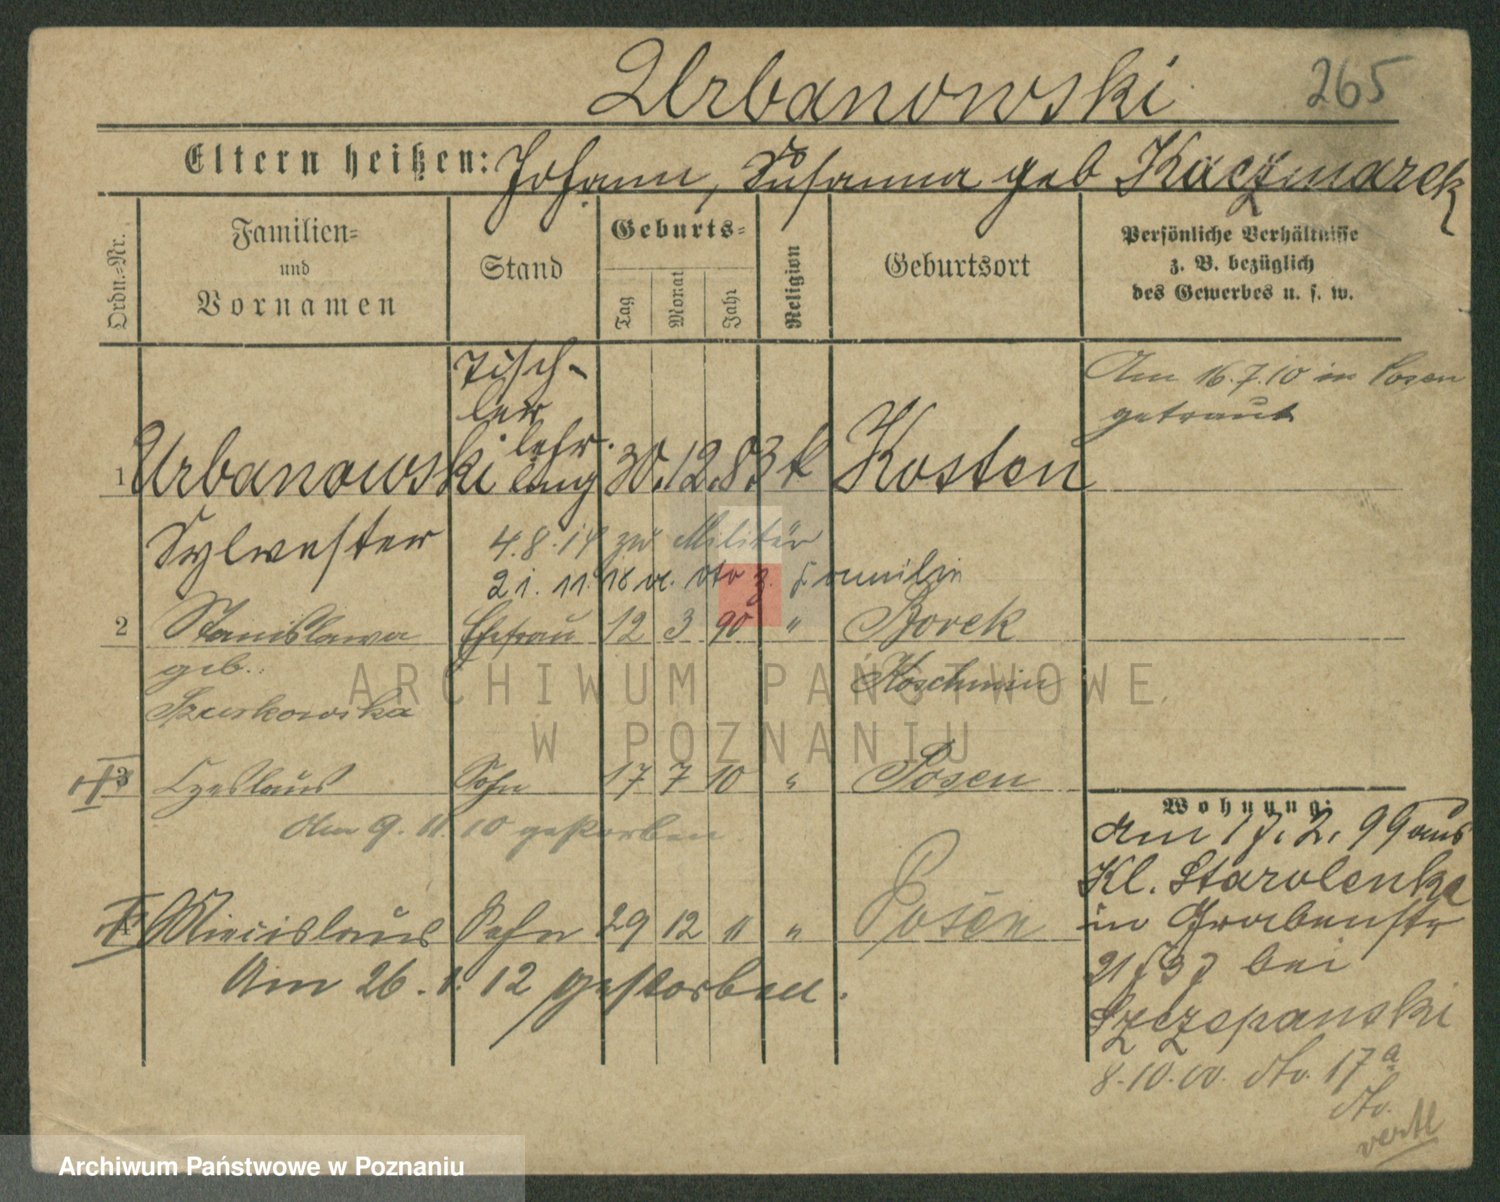 Urbanowski
265
Eltern heißen: Johann, Susanna geb Kaczmarek
Ordn.-Nr.
Familien-
und
Vornamen
Stand
Geburts-
Tag
Monat
Jahr
Religion
Geburtsort
Persönliche Verhältnisse
z. B. bezüglich
des Gewerbes u. s. w.
Tisch-
ler
lehr
1 Urbanowski ling 30. 12. 83 k Kosten
Am 16.7.10 in Posen
getraut
Sylvester
4.8.14 zu Militär
21.11.18 v. dto z. Familie
2 Stanislawa Ehefrau 12 3 90 " Borek
geb.
Koschmin
3 Czeslaus Sohn 17 7 10 " Posen
Am 9. 11 10 gestorben
4 Miecislaus Sohn 29 12 11 " Posen
Am 26. 1. 12 gestorben.
Wohnung:
am 17. 2. 99 aus
Kl. Starolenka
in Grabenstr
bei
Szczepanski
8.10.00. dto. 17a
dto.
vertl
ARCHIWUM PAŃSTWOWE
W POZNANIU
Archiwum Państwowe w Poznaniu